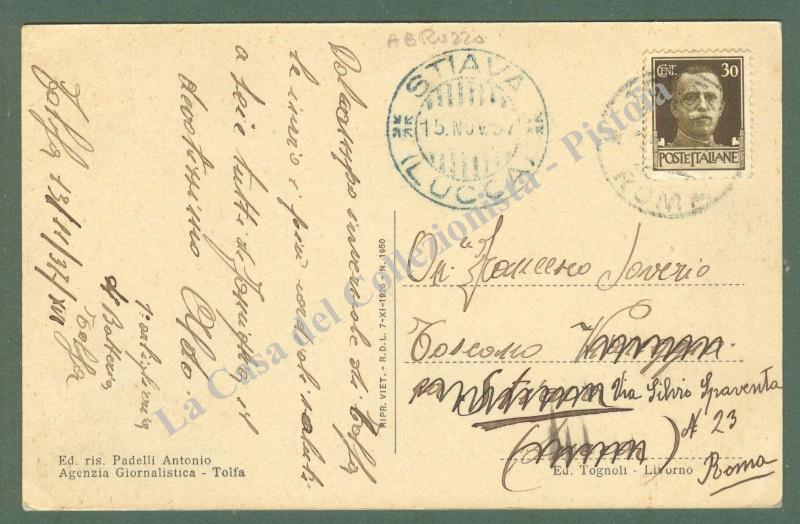 ABRUZZO
STIAVA
15.NOV.37
(LUCCA)
CENT. 30
POSTE ITALIANE
ROMA
Tolfa 13/11/37/XVI
invernale di Tolfa
le invio i più cordiali saluti
a Lei e tutti di famiglia il
devotissimo Aldo
Tolfa
On. Francesco Saverio
Toscano
Via Silvio Spaventa
N 23
Roma
RIPR. VIET. - R.D.L. 7-XI-1925 - N. 1950
Ed. ris. Padelli Antonio
Agenzia Giornalistica - Tolfa
Ed. Tognoli - Livorno
La Casa del Collezionista - Pistoia